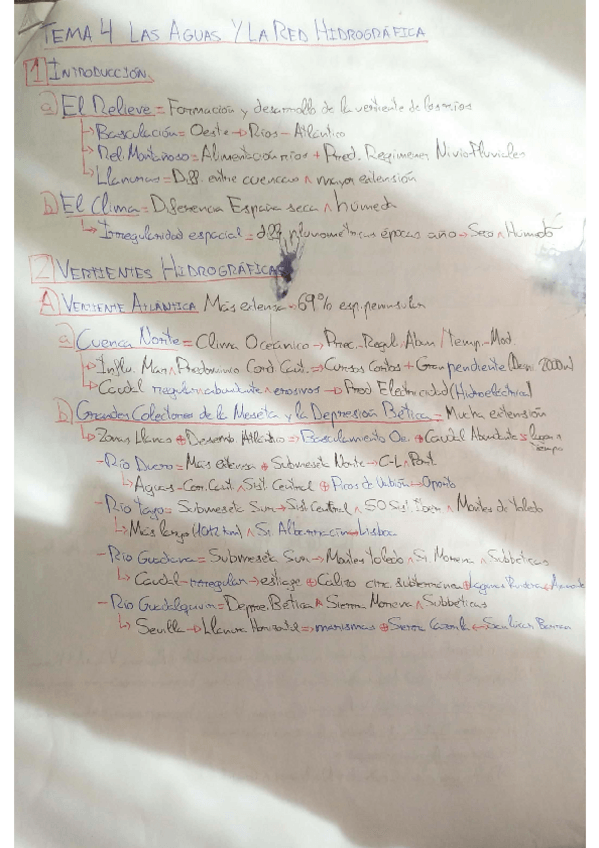 TEMA 4 LAS AGUAS Y LA RED HIDROGRÁFICA
1 INTRODUCCIÓN
a) El Relieve = Formación y desarrollo de la vertiente de los ríos
↳ Basculación = Oeste → Ríos - Atlántico
↳ Rel. Montañoso = Alimentación ríos + Pred. Regímenes Nivio-Pluviales
↳ Llanuras = Diff. entre cuencas ∧ mayor extensión
b) El Clima = Diferencia España seca ∧ húmeda
↳ Irregularidad espacial = diff pluviométricas épocas año → Seco ∧ Húmedo
2 VERTIENTES HIDROGRÁFICAS
A) VERTIENTE ATLÁNTICA Más extensa - 69% esp. peninsular
a) Cuenca Norte = Clima Oceánico → Prec. - Regul. Abun / Temp. - Mod.
↳ Influ. Mar ∧ Predominio Cord. Cant. ⇒ Cursos Cortos + Gran pendiente (Desni. 2000m)
↳ Caudal regular ∧ abundante ∧ erosivos → Prod. Electricidad (Hidroeléctrica)
b) Grandes Colectores de la Meseta y la Depresión Bética = Mucha extensión
↳ Zonas Llanas ⊕ Desemb. Atlántico ⇒ Basculamiento Oe. + Caudal Abundante
- Río Duero = Más extensa + Submeseta Norte → C-L ∧ Port
↳ Aguas - Cor. Cant ∧ Sist. Central ⊕ Picos de Urbión → Oporto
- Río Tajo = Submeseta Sur → Sist. Central ∧ SO Sist. Iber. ∧ Montes de Toledo
↳ Más largo (1012 km) ∧ Si. Albarracín → Lisboa
- Río Guadiana = Submeseta Sur → Montes Toledo ∧ Si. Morena ∧ Subbéticas
↳ Caudal - irregular → estiaje ⊕ Caliza circ. subterránea ⊕ Lagunas Ruidera
- Río Guadalquivir = Depre. Bética ∧ Sierra Morena ∧ Subbéticas
↳ Sevilla → Llanura Horizontal → marismas ⊕ Sierra Cazorla